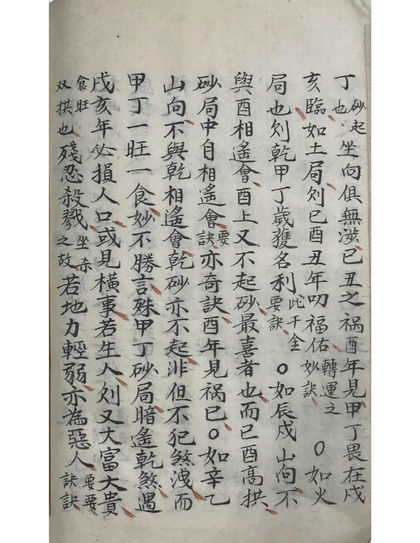 丁砂起也坐向俱無涉已丑之禍酉年見甲丁畏在戌
亥臨如土局則已酉丑年叨福佑轉運之妙訣〇如火
局也則乾甲丁歲獲名利此千金要訣〇如辰戌山向不
與酉相遙會酉上又不起砂最喜者也而已酉高拱
砂局中自相遙會要訣亦奇訣酉年見禍已〇如辛乙
山向不與乾相遙會乾砂亦不起非但不犯煞洩而
甲丁一旺一食妙不勝言殊甲丁砂局暗遙乾煞遇
戌亥年必損人口或見橫事若生人則又大富大貴
食旺双拱也殘忍殺戮坐杀之故若地力輕弱亦為惡人要訣要訣